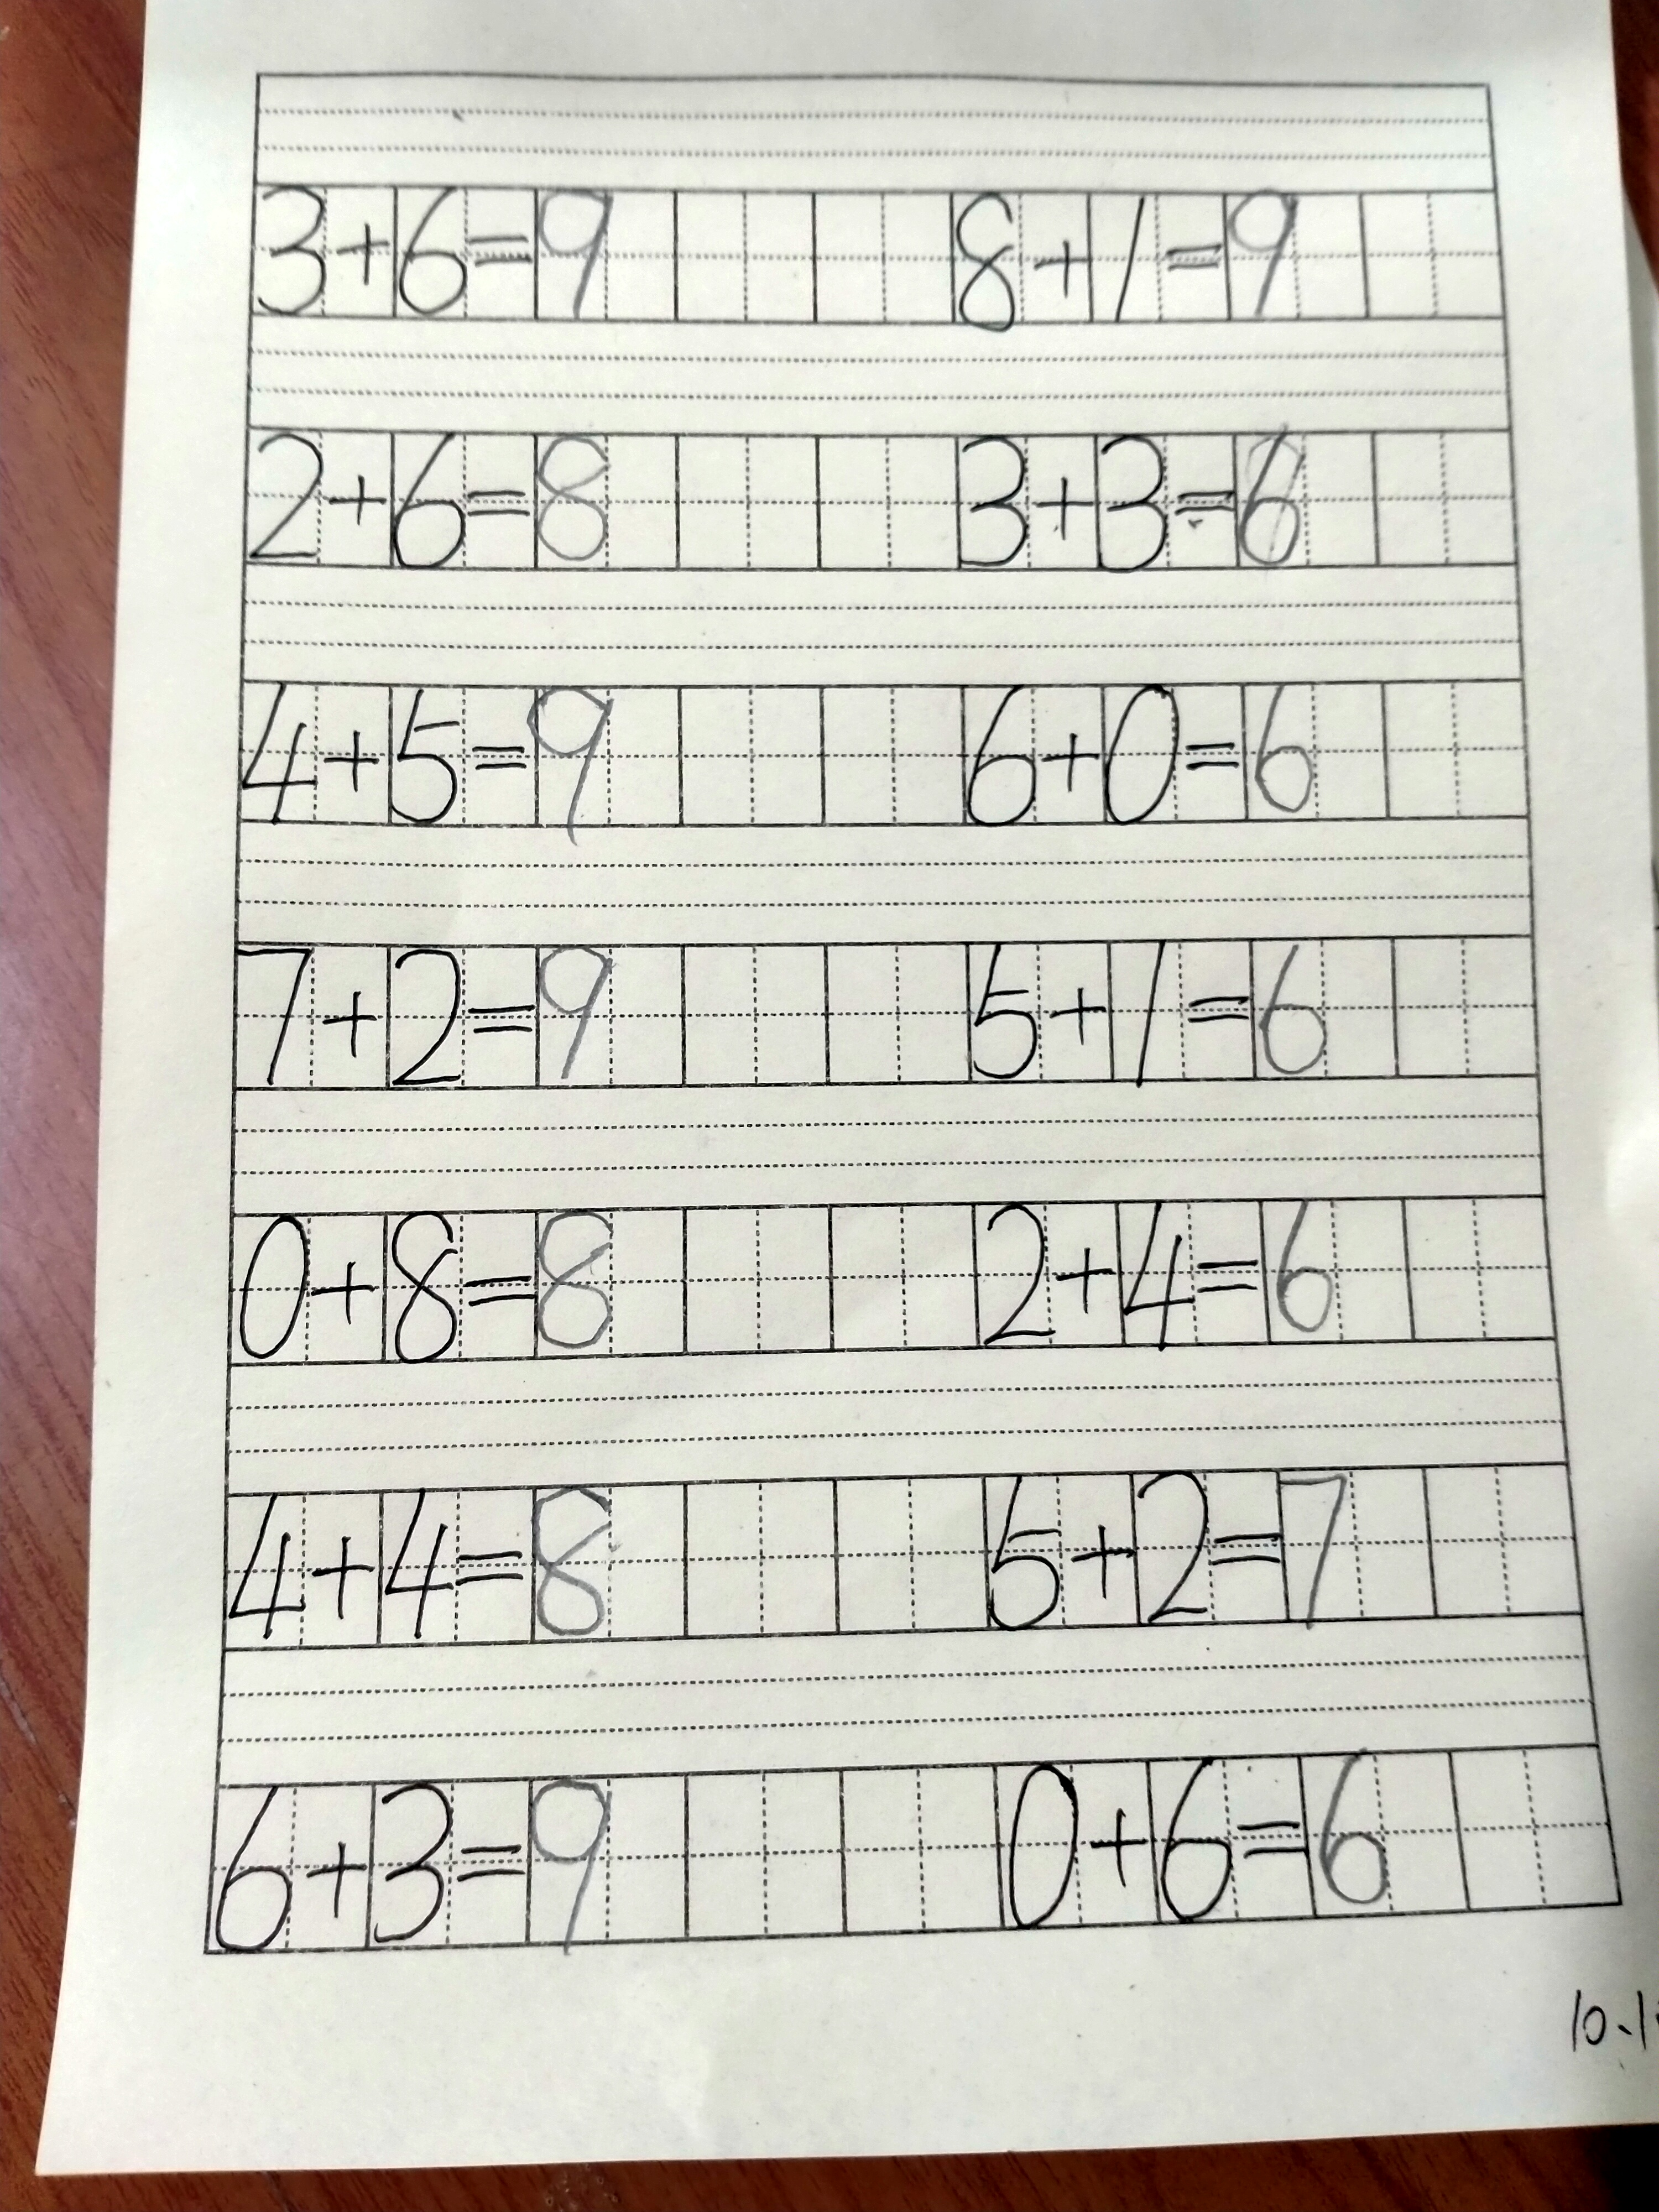 3+6=9 8+1=9
2+6=8 3+3=6
4+5=9 6+0=6
7+2=9 5+1=6
0+8=8 2+4=6
4+4=8 5+2=7
6+3=9 0+6=6